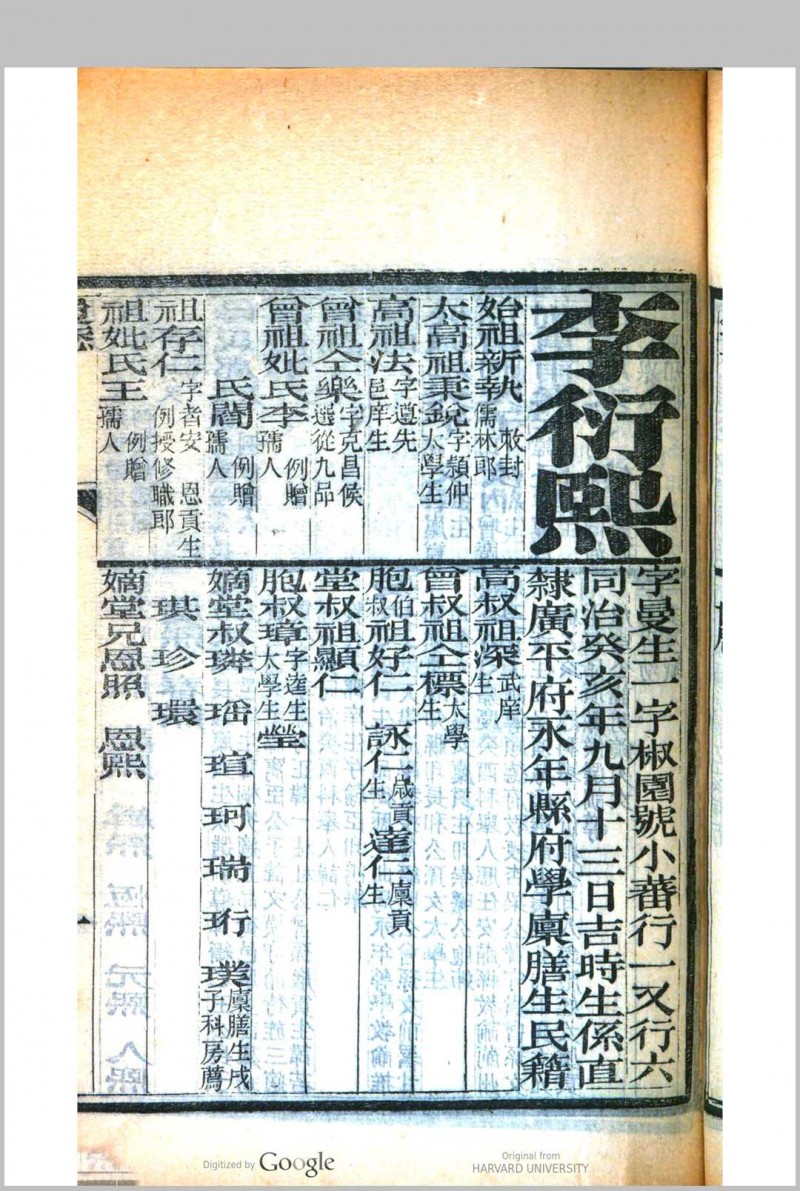 李衍熙
字曼生一字椒園號小蕃行一又行六
同治癸亥年九月十三日吉時生係直
隸廣平府永年縣府學廩膳生民籍
始祖新執 敕封儒林郎
太高祖秉銳 字穎仲太學生
高祖法 字遵先邑庠生
曾祖仝樂 字克昌候選從九品
曾祖妣氏李 例贈孺人
氏閻 例贈孺人
祖存仁 字者安 恩貢生例授修職郎
祖妣氏王 例贈孺人
高叔祖深 武庠生
曾叔祖仝標 太學生
胞伯叔祖好仁 詠仁 歲貢生 達仁 廩貢生
堂叔祖顯仁
胞叔璋 字達生太學生 瑩
嫡堂叔璘 璠 瑄 珂 瑞 珩 璞 廩膳生戌子科房薦
琪 珍 環
嫡堂兄恩照 恩熙
Digitized by Google
Original from
HARVARD UNIVERSITY